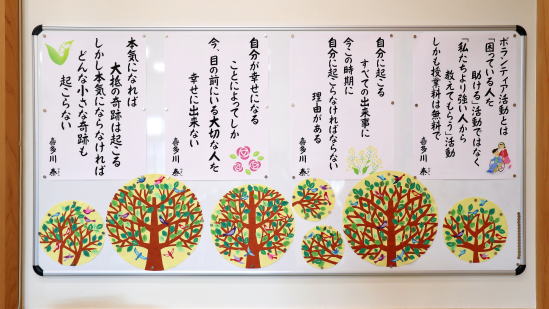 ボランティア活動とは
「困っている人を
助ける」活動ではなく
「私たちより強い人から
教えてもらう」活動
しかも授業料は無料で
喜多川 泰
自分に起こる
すべての出来事に
今この時期に
自分に起こらなければならない
理由がある
喜多川 泰
自分が幸せになる
ことによってしか
今、目の前にいる大切な人を
幸せに出来ない
喜多川 泰
本気になれば
大抵の奇跡は起こる
しかし本気にならなければ
どんな小さな奇跡も
起こらない
喜多川 泰